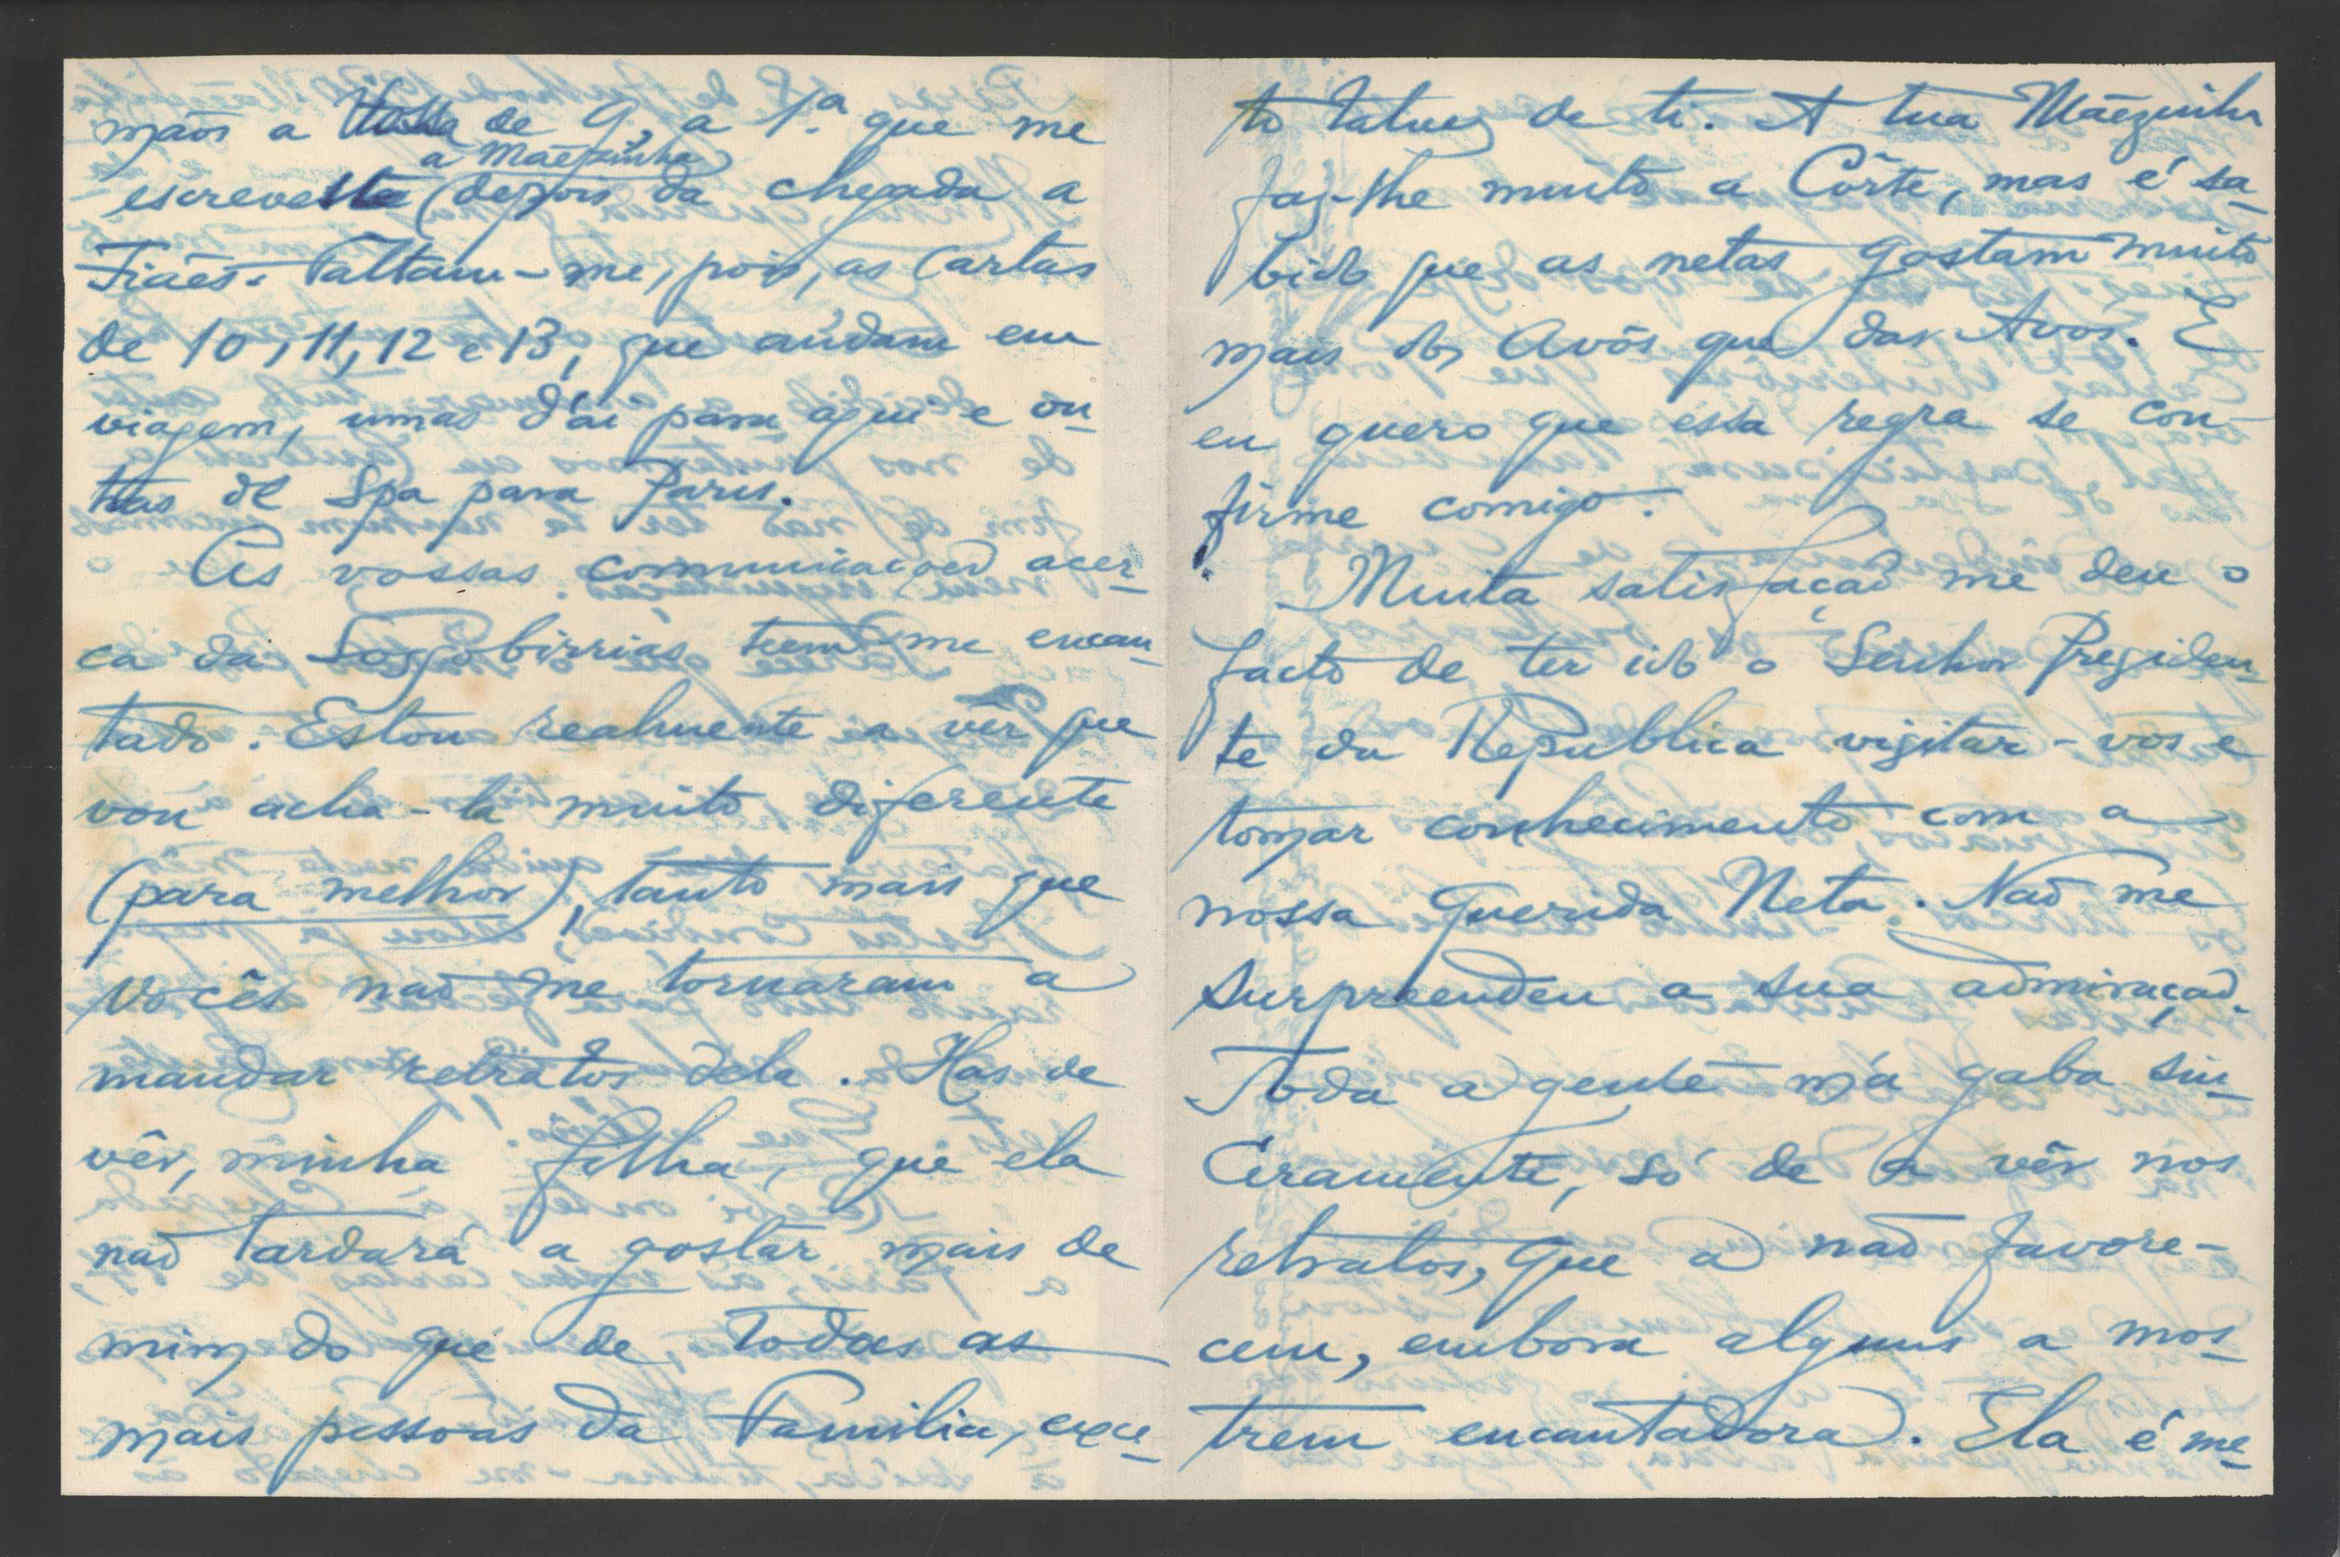 mãos a Vossa de 9, a 1.ª que me
a Mãezinha
escreveste (depois da chegada a
Fiães. Faltam-me, pois, as Cartas
de 10, 11, 12 e 13, que andam em
viagem, umas d'aí para aqui e ou-
tras de Spa para Paris.
As vossas communicações acer-
ca da teem-me encan-
tado. Estou realmente a vêr que
vou acha-la muito diferente
(para melhor), tanto mais que
Vocês não me tornaram a
mandar retratos dela. Has de
vêr, minha filha, que ela
não tardará a gostar mais de
mim do que de todas as
mais pessoas da Familia, exce-
to talvez de ti. A tua Mãezinha
faz-lhe muito a Côrte, mas é sa-
bido que as netas gostam muito
mais dos Avôs que das Avós. E
eu quero que essa regra se con-
firme comigo.
Muita satisfação me deu o
facto de ter ido o Senhor Presiden-
te da Republica visitar-vos e
tomar conhecimento com a
nossa Querida Neta. Não me
surpreendeu a sua admiração.
Toda a gente m'a gaba sin-
ceramente, só de a vêr nos
retratos, que a não favore-
cem, embora alguns a mos-
trem encantadora. Ela é me-